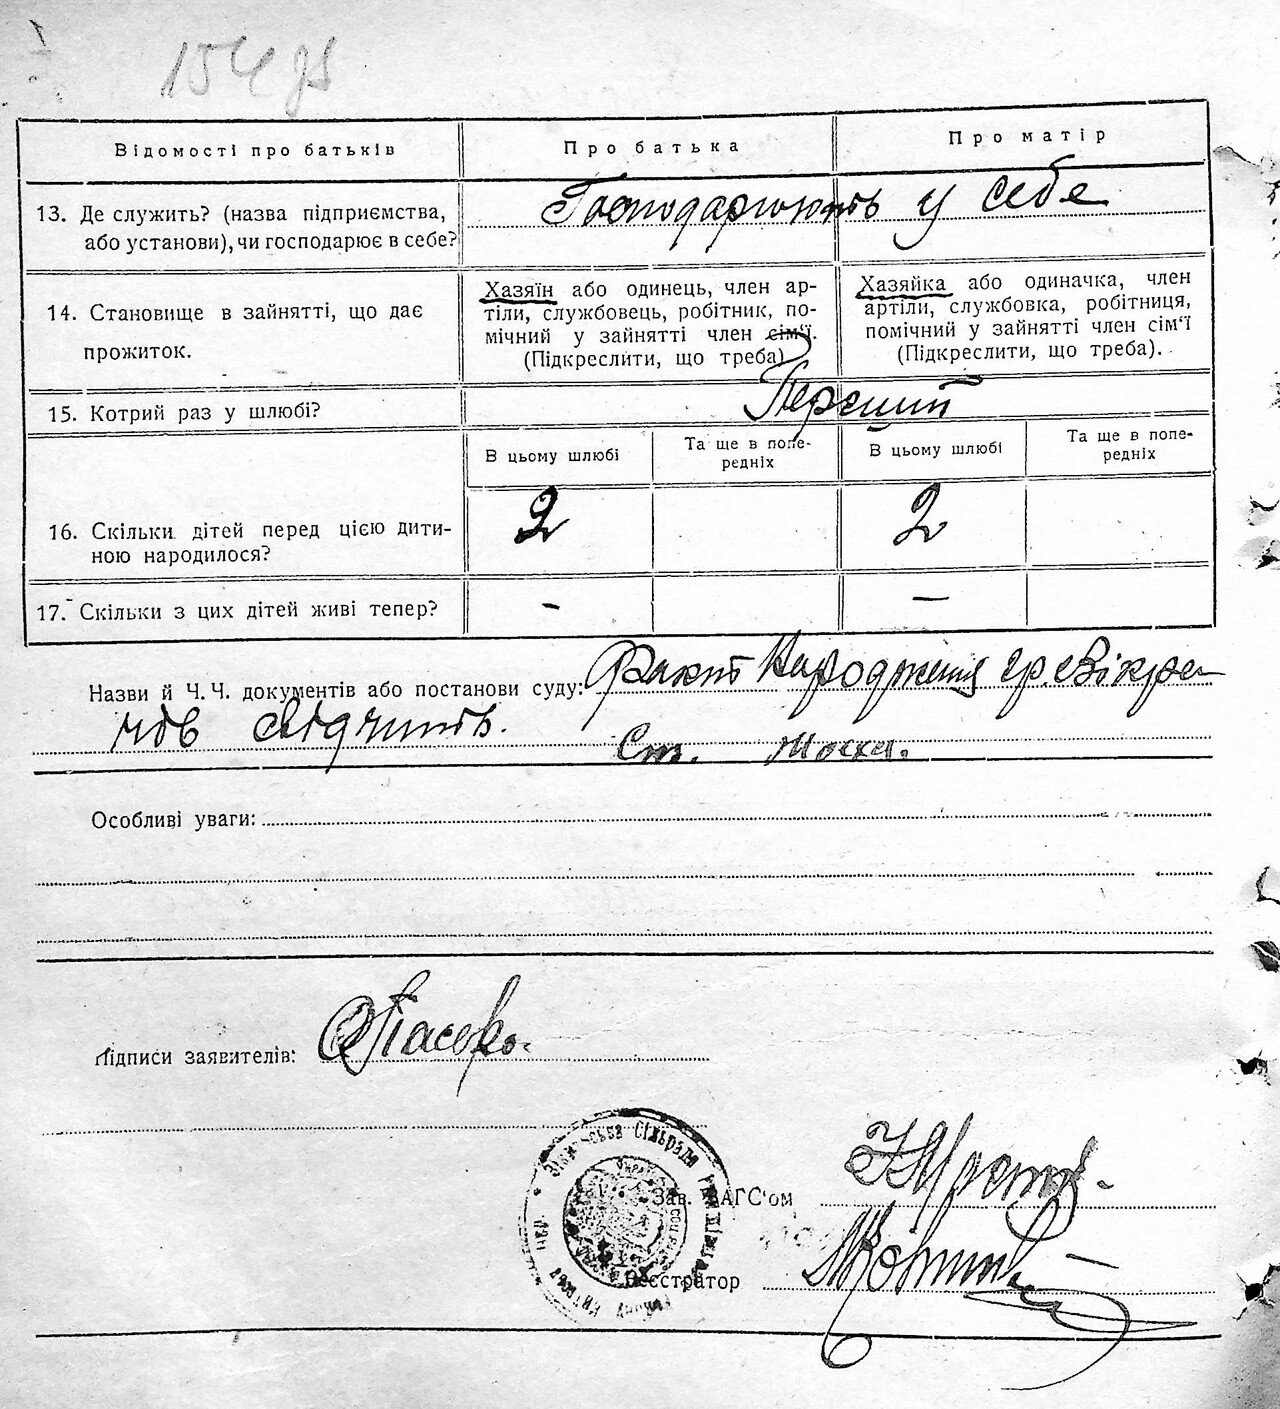 154 зв
Відомості про батьків
Про батька
Про матір
13. Де служить? (назва підприємства,
або установи), чи господарює в себе?
Господарюють у себе
14. Становище в зайнятті, що дає
прожиток.
Хазяїн або одинець, член ар-
тіли, службовець, робітник, по-
мічний у зайнятті член сім'ї.
(Підкреслити, що треба)
Хазяйка або одиначка, член
артіли, службовка, робітниця,
помічний у зайнятті член сім'ї
(Підкреслити, що треба).
15. Котрий раз у шлюбі?
Перший
В цьому шлюбі
Та ще в попе-
редніх
В цьому шлюбі
Та ще в попе-
редніх
16. Скільки дітей перед цією дити-
ною народилося?
2
2
17. Скільки з цих дітей живі тепер?
-
—
Назви й Ч.Ч. документів або постанови суду: Факт народження гр.
свідчить.
Ст.
Особливі уваги:
Підписи заявителів:
Сільрада
Зав. ЗАГС'ом
Реєстратор